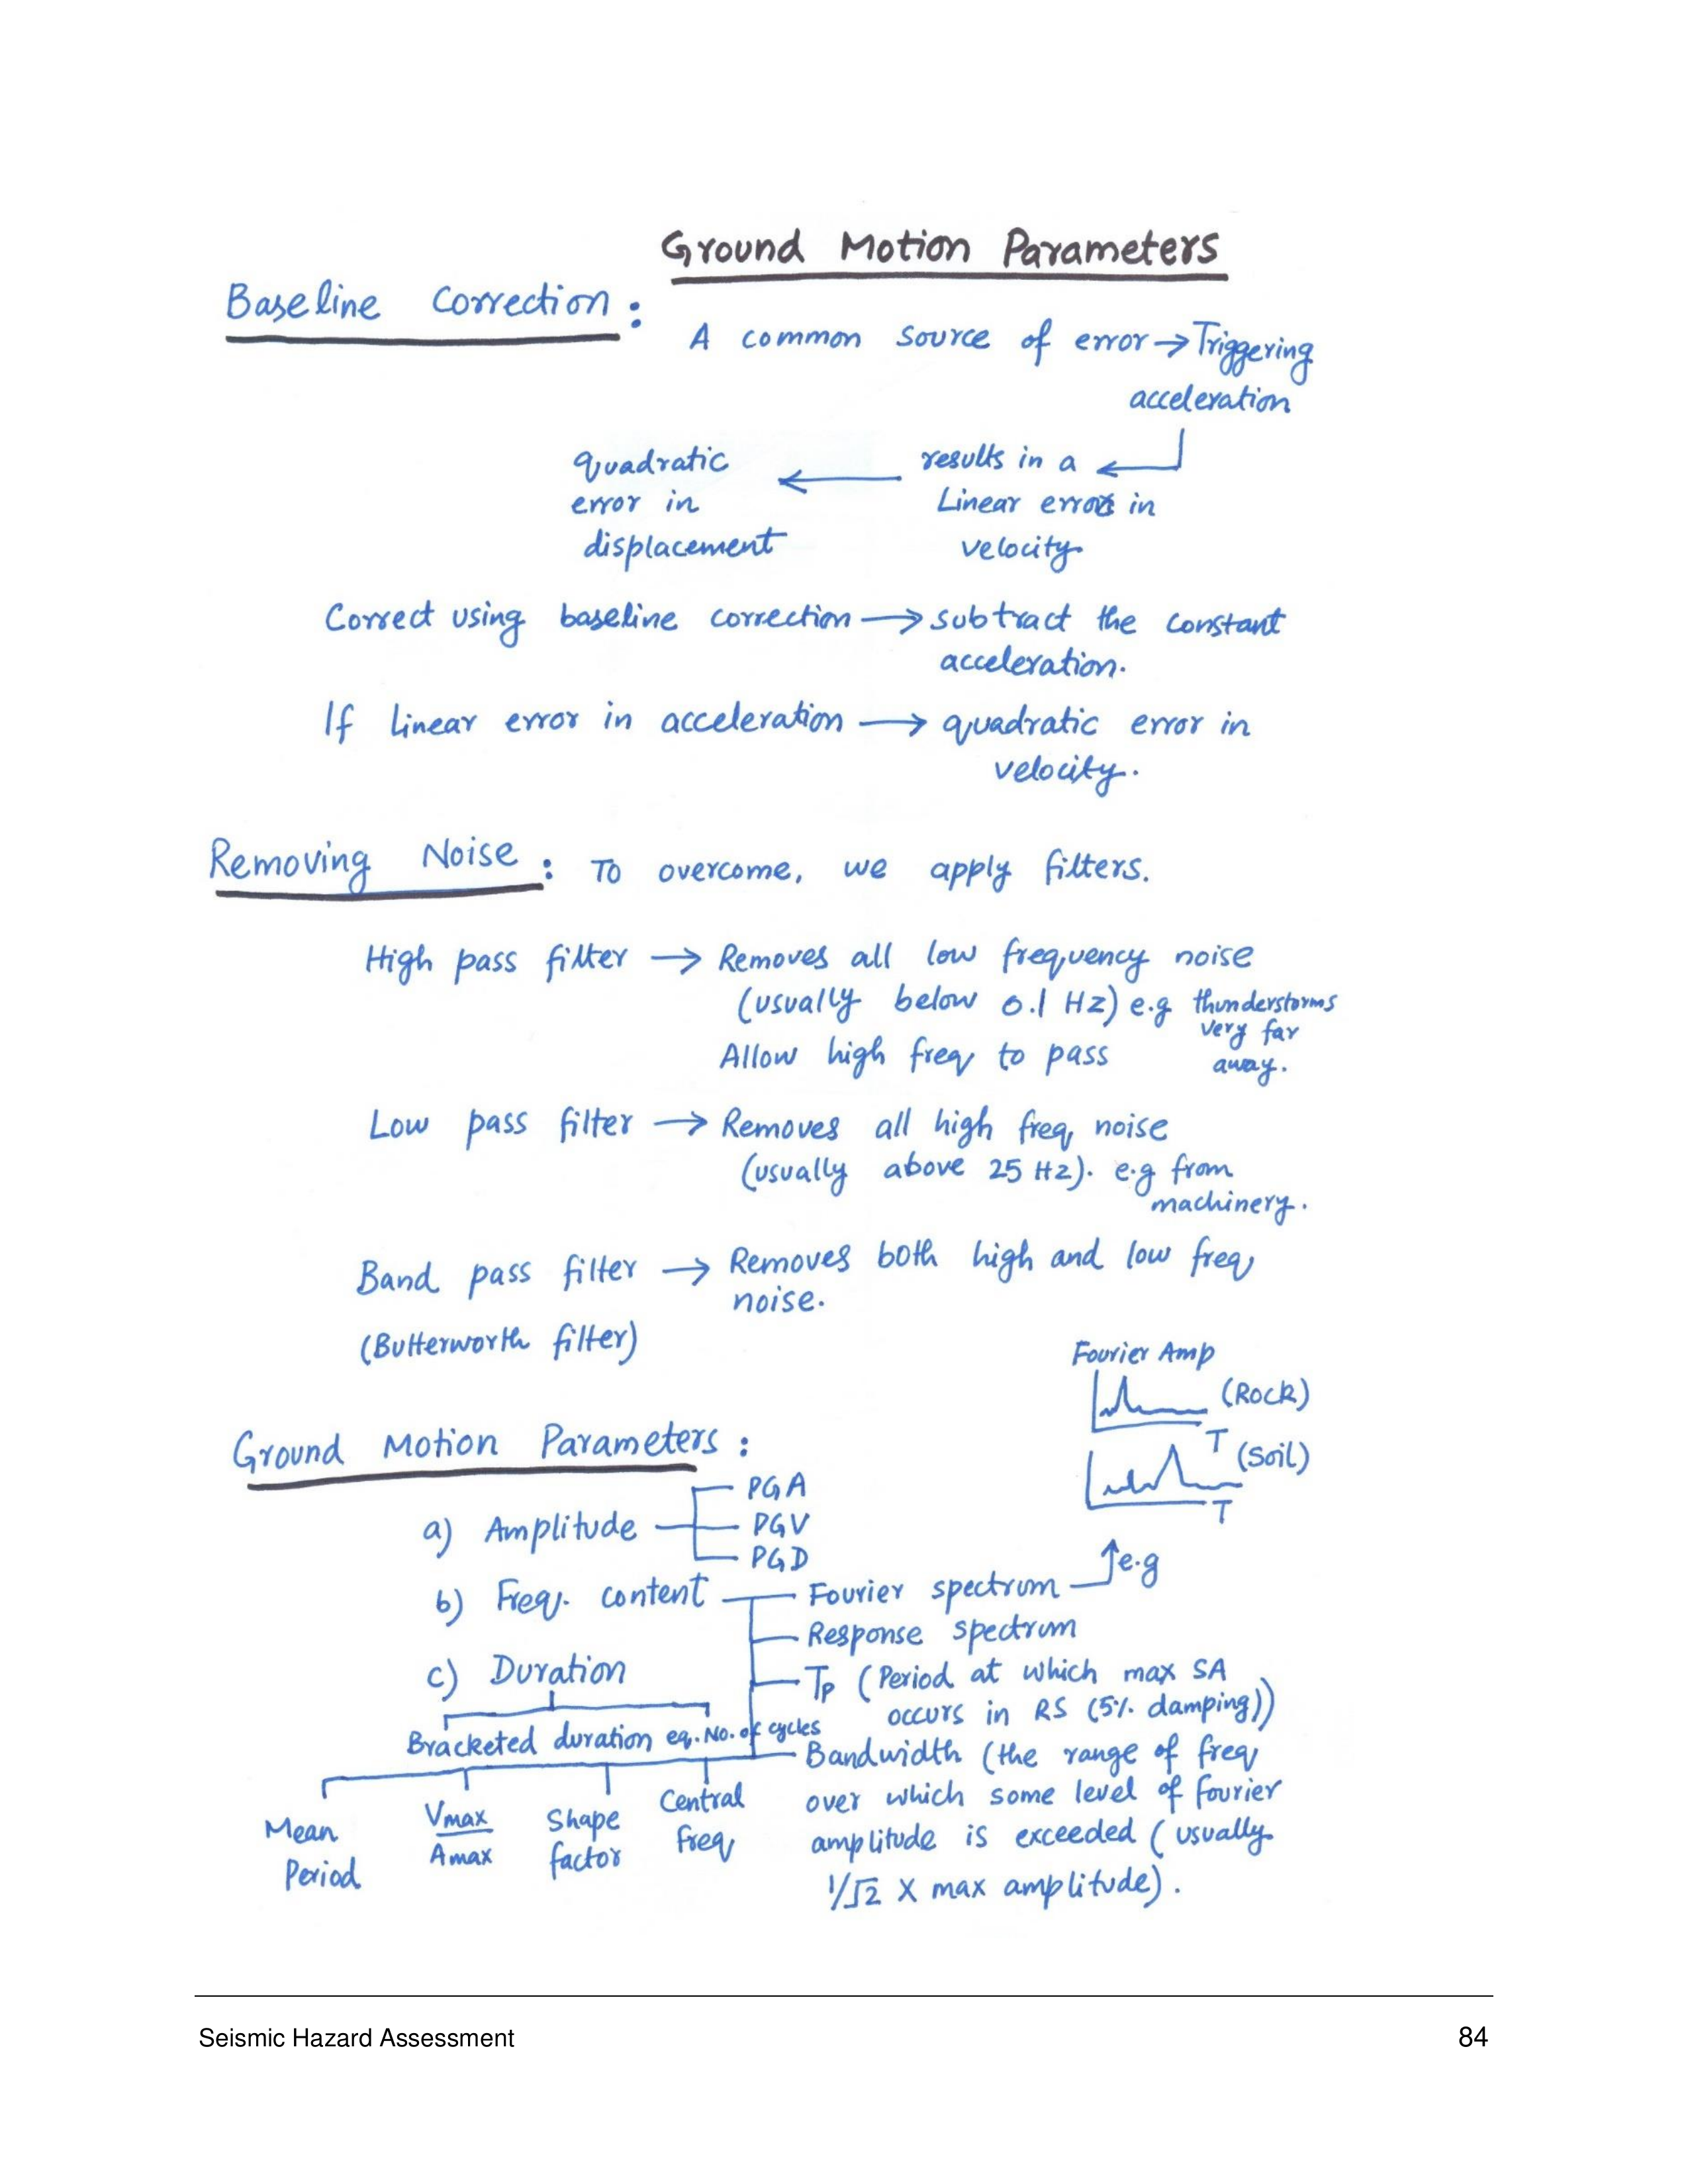 Ground Motion Parameters
Baseline Correction :
A common source of error → Triggering
acceleration
results in a
Linear error in
velocity
quadratic
error in
displacement
Correct using baseline correction → subtract the constant
acceleration.
If linear error in acceleration → quadratic error in
velocity.
Removing Noise : To overcome, we apply filters.
High pass filter → Removes all low frequency noise
(usually below 0.1 Hz) e.g thunderstorms
very far
away.
Allow high freq to pass
Low pass filter → Removes all high freq noise
(usually above 25 Hz). e.g from
machinery.
Band pass filter → Removes both high and low freq
noise.
(Butterworth filter)
Fourier Amp
(Rock)
T
(Soil)
T
Ground Motion Parameters :
a) Amplitude
PGA
PGV
PGD
b) Freq. content
Fourier spectrum
e.g
Response spectrum
Tp (Period at which max SA
occurs in RS (5% damping))
c) Duration
Bracketed duration eq. No. of cycles
Bandwidth (the range of freq
over which some level of fourier
amplitude is exceeded (usually
1/√2 X max amplitude).
Mean
Period
Vmax
Amax
Shape
factor
Central
freq
Seismic Hazard Assessment 84